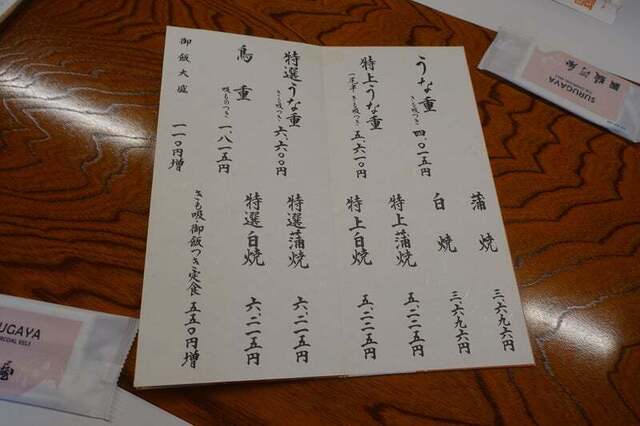 うな重 きも吸つき 四、〇一五円
特上うな重 一尾半・きも吸つき 五、六一〇円
特選うな重 きも吸つき 六、六〇〇円
鳥重 吸ものつき 一、八一五円
御飯大盛 一一〇円増
蒲焼 三、六九六円
白焼 三、六九六円
特上蒲焼 五、二二五円
特上白焼 五、二二五円
特選蒲焼 六、二一五円
特選白焼 六、二一五円
きも吸・御飯つき定食 五五〇円増
SURUGAYA
UGAYA